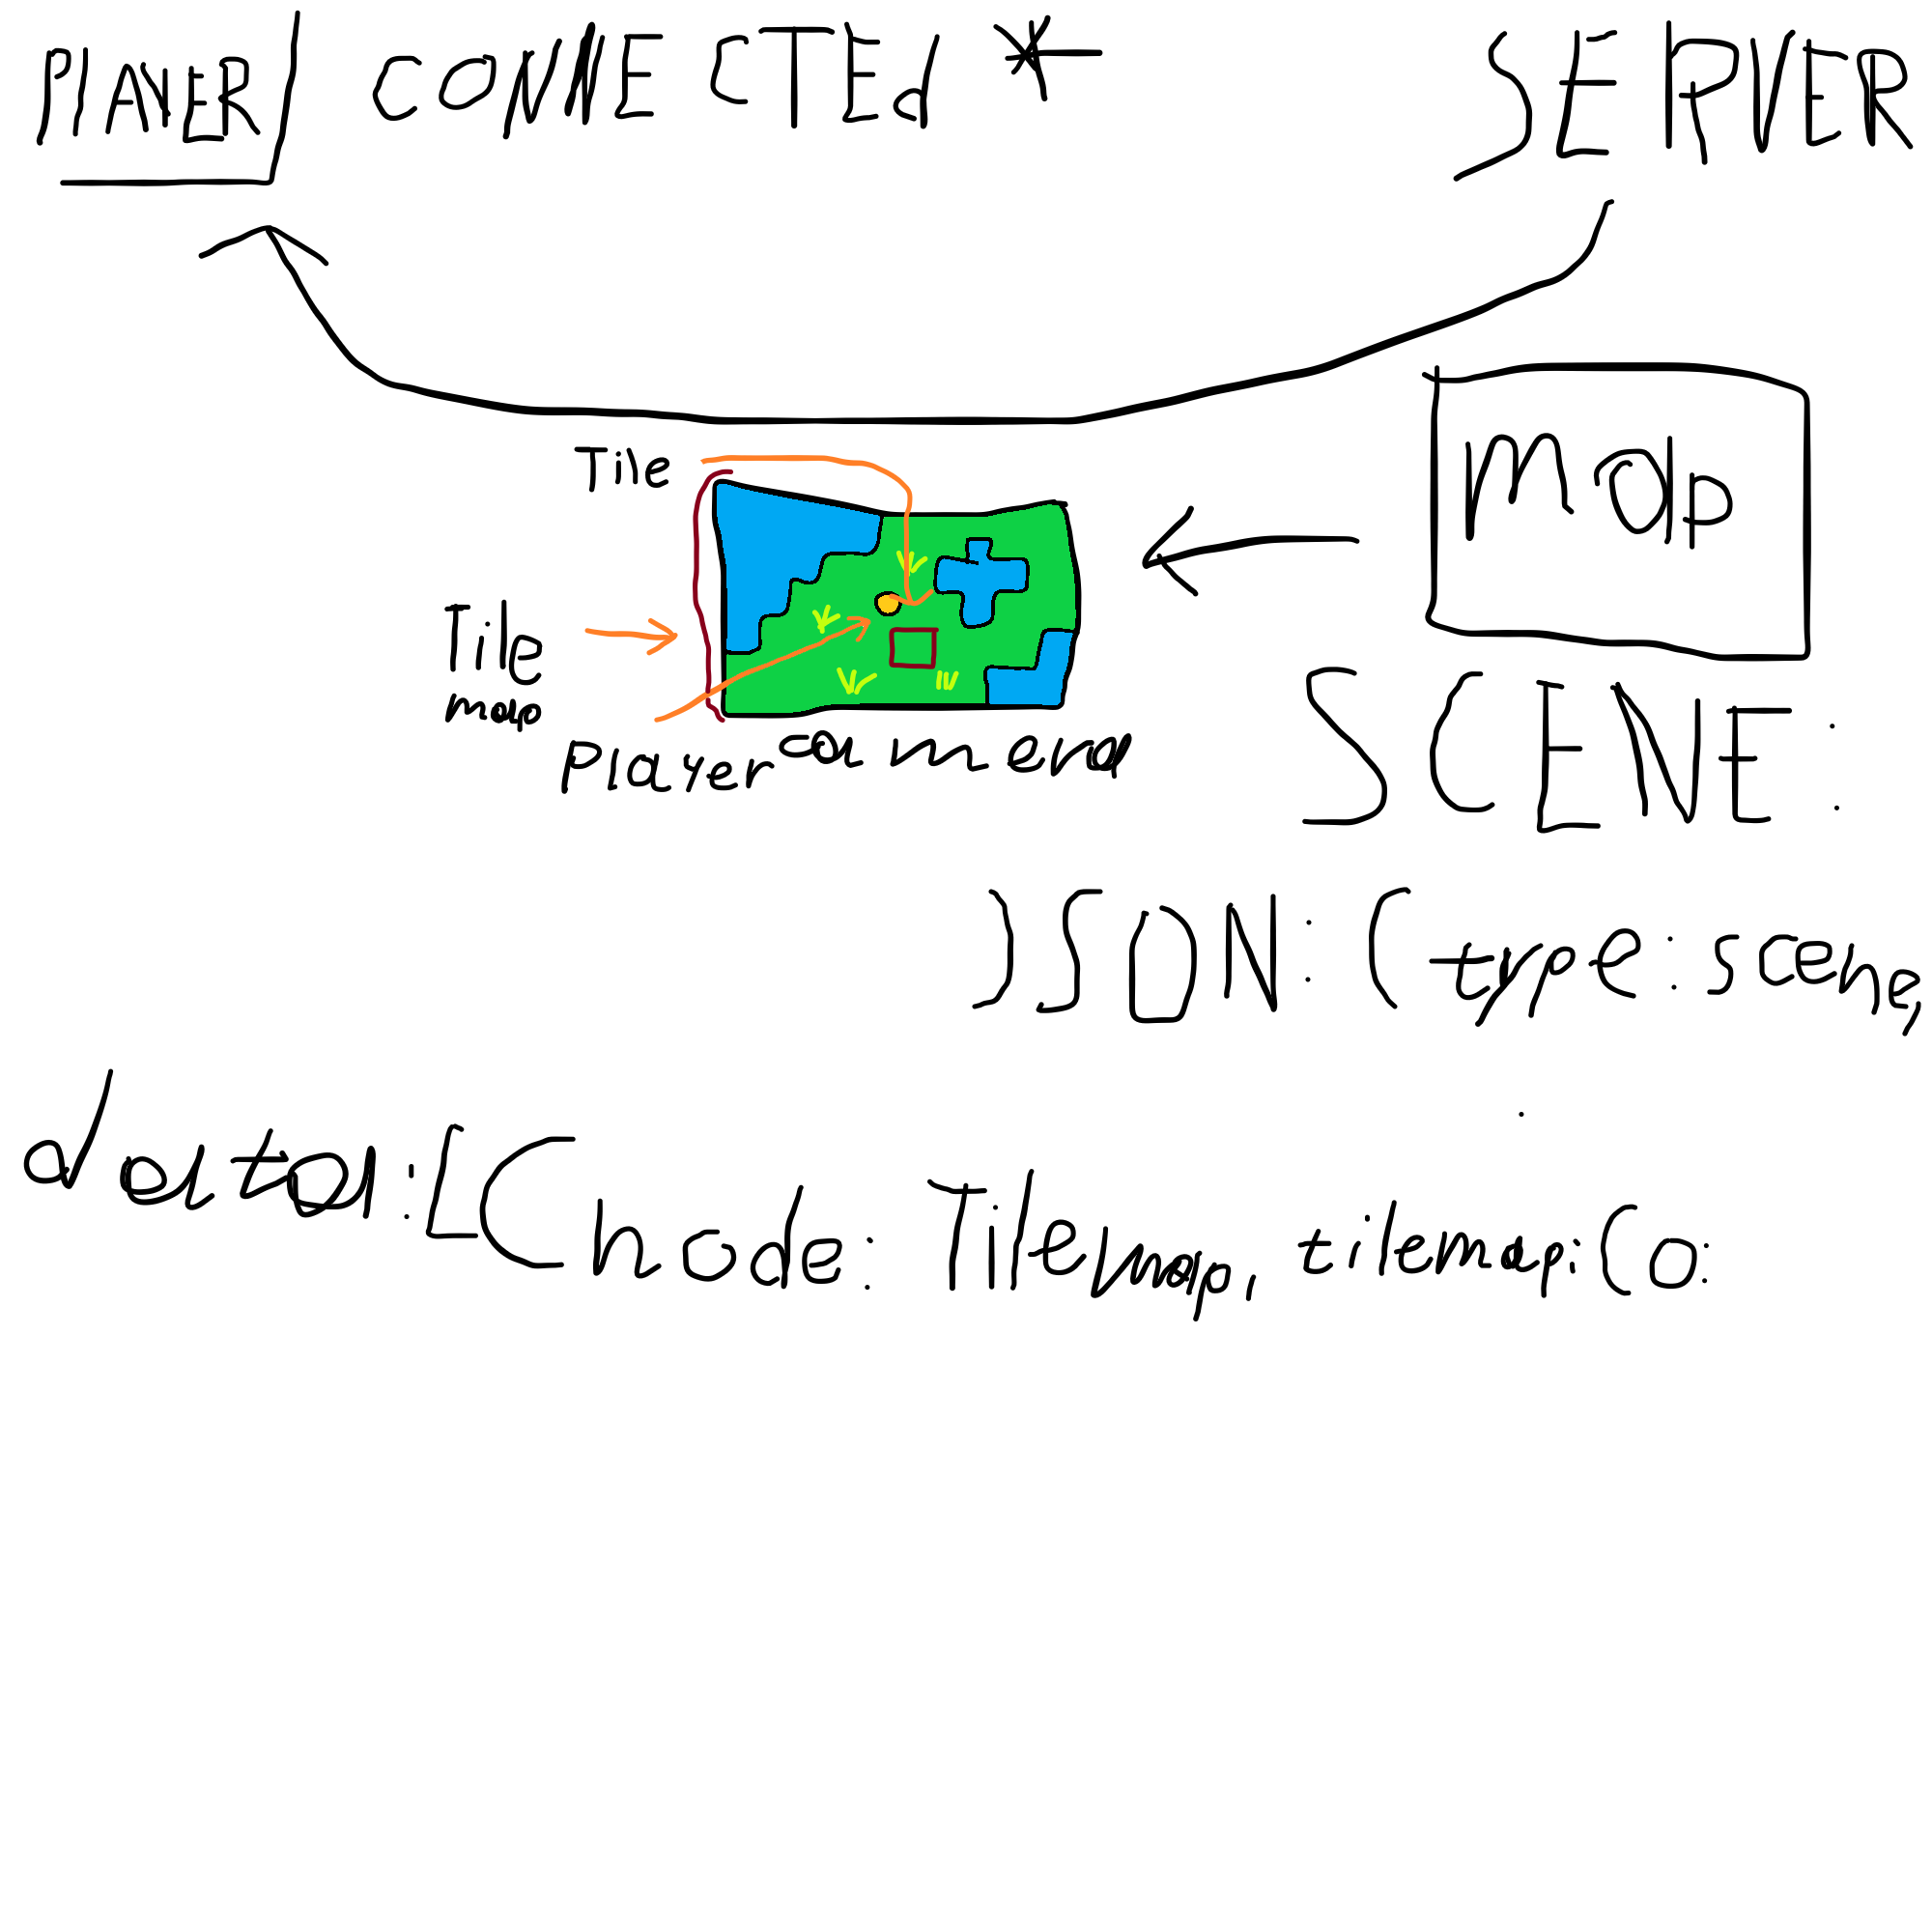 PlAyER CONNECTEd * SERVER
Tile
Map
Tile
map
Player camera
SCENE:
JSON: { type: scene,
data: [{ node: Tilemap, tilemap: { 0: